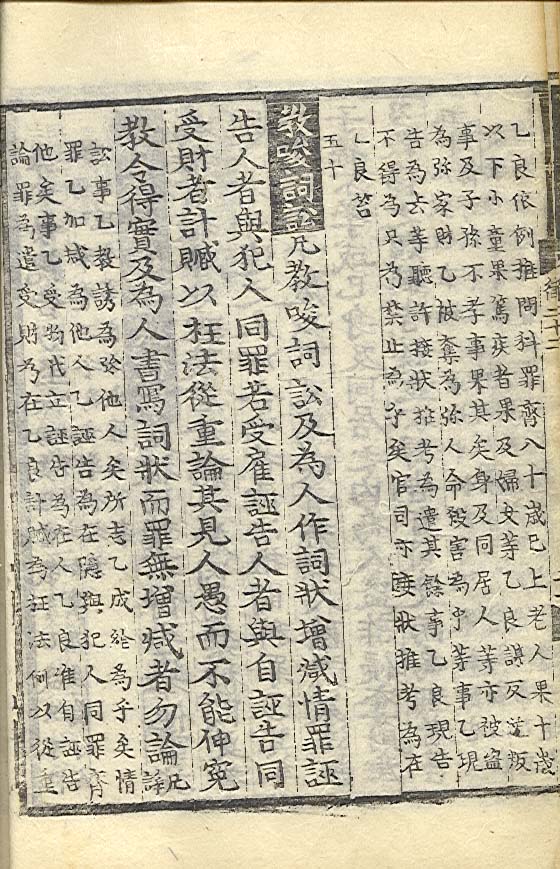 乙良依例推問科罪齊八十歲已上老人果十歲
以下小童果篤疾者果及婦女等乙良謀反逆叛
事及子孫不孝事果其矣身及同居人等亦被盜
為㢱家財乙被奪為㢱人命殺害為乎等事乙現
告為去等聽許接狀推考為遣其餘事乙良現告
不得為只為禁止為乎矣官司亦接狀推考為在
乙良笞
五十
教唆詞訟凡教唆詞訟及為人作詞狀增減情罪誣
告人者與犯人同罪若受雇誣告人者與自誣告同
受財者計贓以枉法從重論其見人愚而不能伸冤
教令得實及為人書寫詞狀而罪無增減者勿論凡誶
訟事乙教誘為㢱他人矣所志乙成給為乎矣情
罪乙加減為他人乙誣告為在隱與犯人同罪齊
他矣事乙受物代立誣告為在人乙良准自誣告
論罪為遣受財為在乙良計贓為枉法何以從重